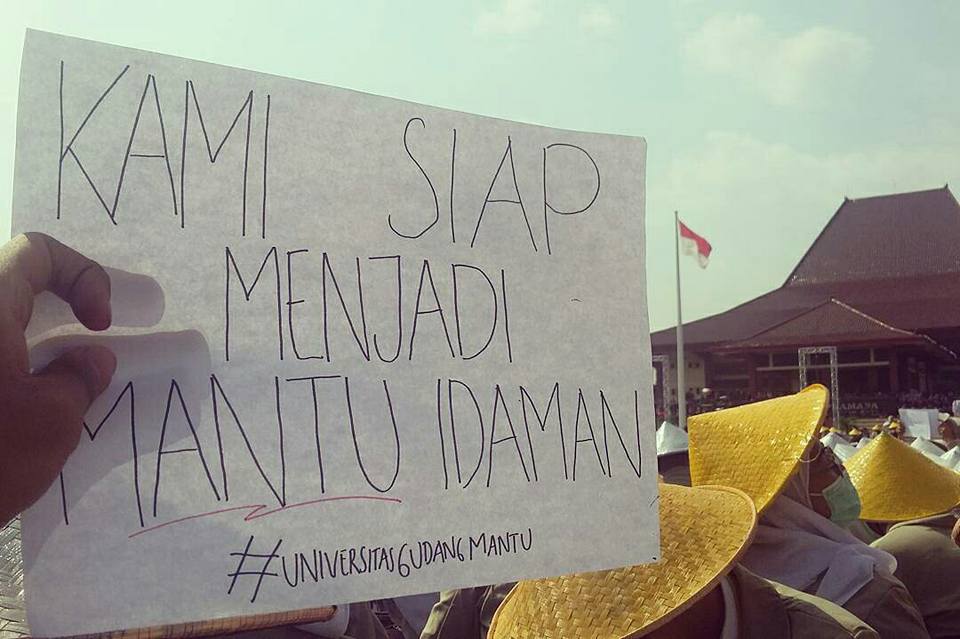 KAMI SIAP
MENJADI
MANTU IDAMAN
#UNIVERSITASGUDANGMANTU